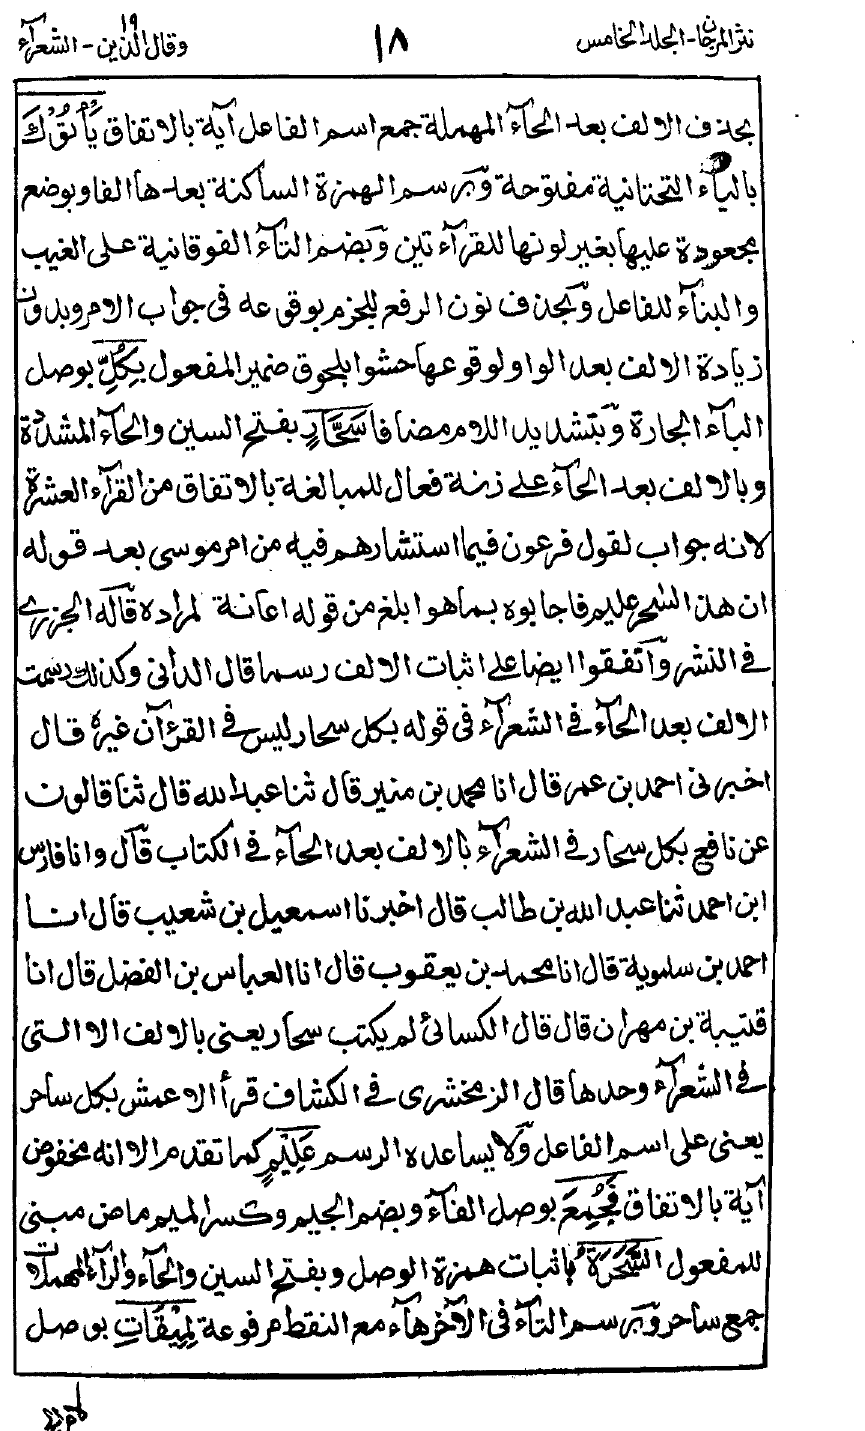 نثر المرجان - المجلد الخامس
١٨
وقال الذين ١٩ - الشعرآء
بحذف الالف بعد الحآء المهملة جمع اسم الفاعل آية بالاتفاق يَأْتُوْكَ
باليآء التحتانية مفتوحة وبرسم الهمزة الساكنة بعدها الفا وبوضع
مجعودة عليها بغير لونها للقرآءتين وبضم التآء الفوقانية على الغيب
والبنآء للفاعل وبحذف نون الرفع للجزم بوقوعه فى جواب الامر وبدون
زيادة الالف بعد الواو لوقوعها حشوا بلحوق ضمير المفعول بِكُلِّ بوصل
البآء الجارة وبتشديد اللام مضافا سَحَّارٍ بفتح السين والحآء المشددة
وبالالف بعد الحآء على زنة فعال للمبالغة بالاتفاق من القرآء العشرة
لانه جواب لقول فرعون فيما استشارهم فيه من امر موسى بعد قوله
ان هذا لسحر عليم فاجابوه بما هو ابلغ من قوله اعانة لمراده قاله الجزرى
فى النشر واتفقوا ايضا على اثبات الالف رسما قال الدانى وكذلك رسمت
الالف بعد الحآء فى الشعرآء فى قوله بكل سحار ليس فى القرآن غيره قال
اخبرنى احمد بن عمر قال انا محمد بن منير قال ثنا عبد الله قال ثنا قالون
عن نافع بكل سحار فى الشعرآء بالالف بعد الحآء فى الكتاب قال وانا فارس
ابن احمد ثنا عبد الله بن طالب قال اخبرنا اسمعيل بن شعيب قال انا
احمد بن سلموية قال انا محمد بن يعقوب قال انا العباس بن الفضل قال انا
قتيبة بن مهران قال قال الكسائى لم يكتب سحار يعنى بالالف الا التى
فى الشعرآء وحدها قال الزمخشرى فى الكشاف قرأ الاعمش بكل ساحر
يعنى على اسم الفاعل ولا يساعده الرسم عَلِيْمٍ كما تقدم الا انه مخفوض
آية بالاتفاق فَجُمِعَ بوصل الفآء وبضم الجيم وكسر الميم ماض مبنى
للمفعول السَّحَرَةُ باثبات همزة الوصل وبفتح السين والحآء والرآء المهملات
جمع ساحر وبرسم التآء فى الآخر هآء مع النقط مرفوعة لِمِيْقَاتِ بوصل